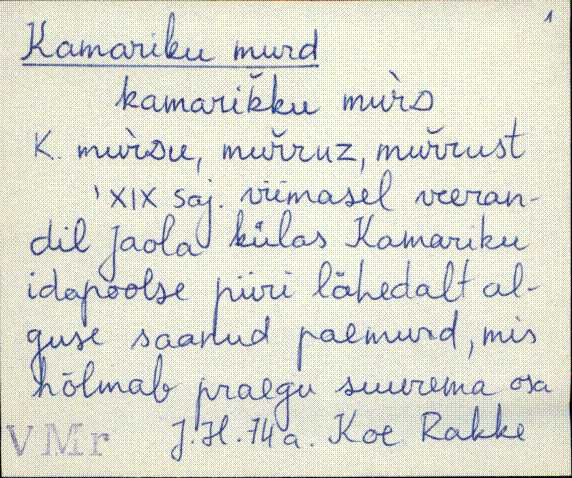 1
Kamariku murd
kamarik̆ku mùrᴅ
K. mùrᴅu, mur̆ruz, mur̆rust
'XIX saj. viimasel veeran-
dil Jaola külas Kamariku
idapoolse piiri lähedalt al-
guse saanud paemurd, mis
hõlmab praegu suurema osa
VMr J.H. 74 a. Koe Rakke